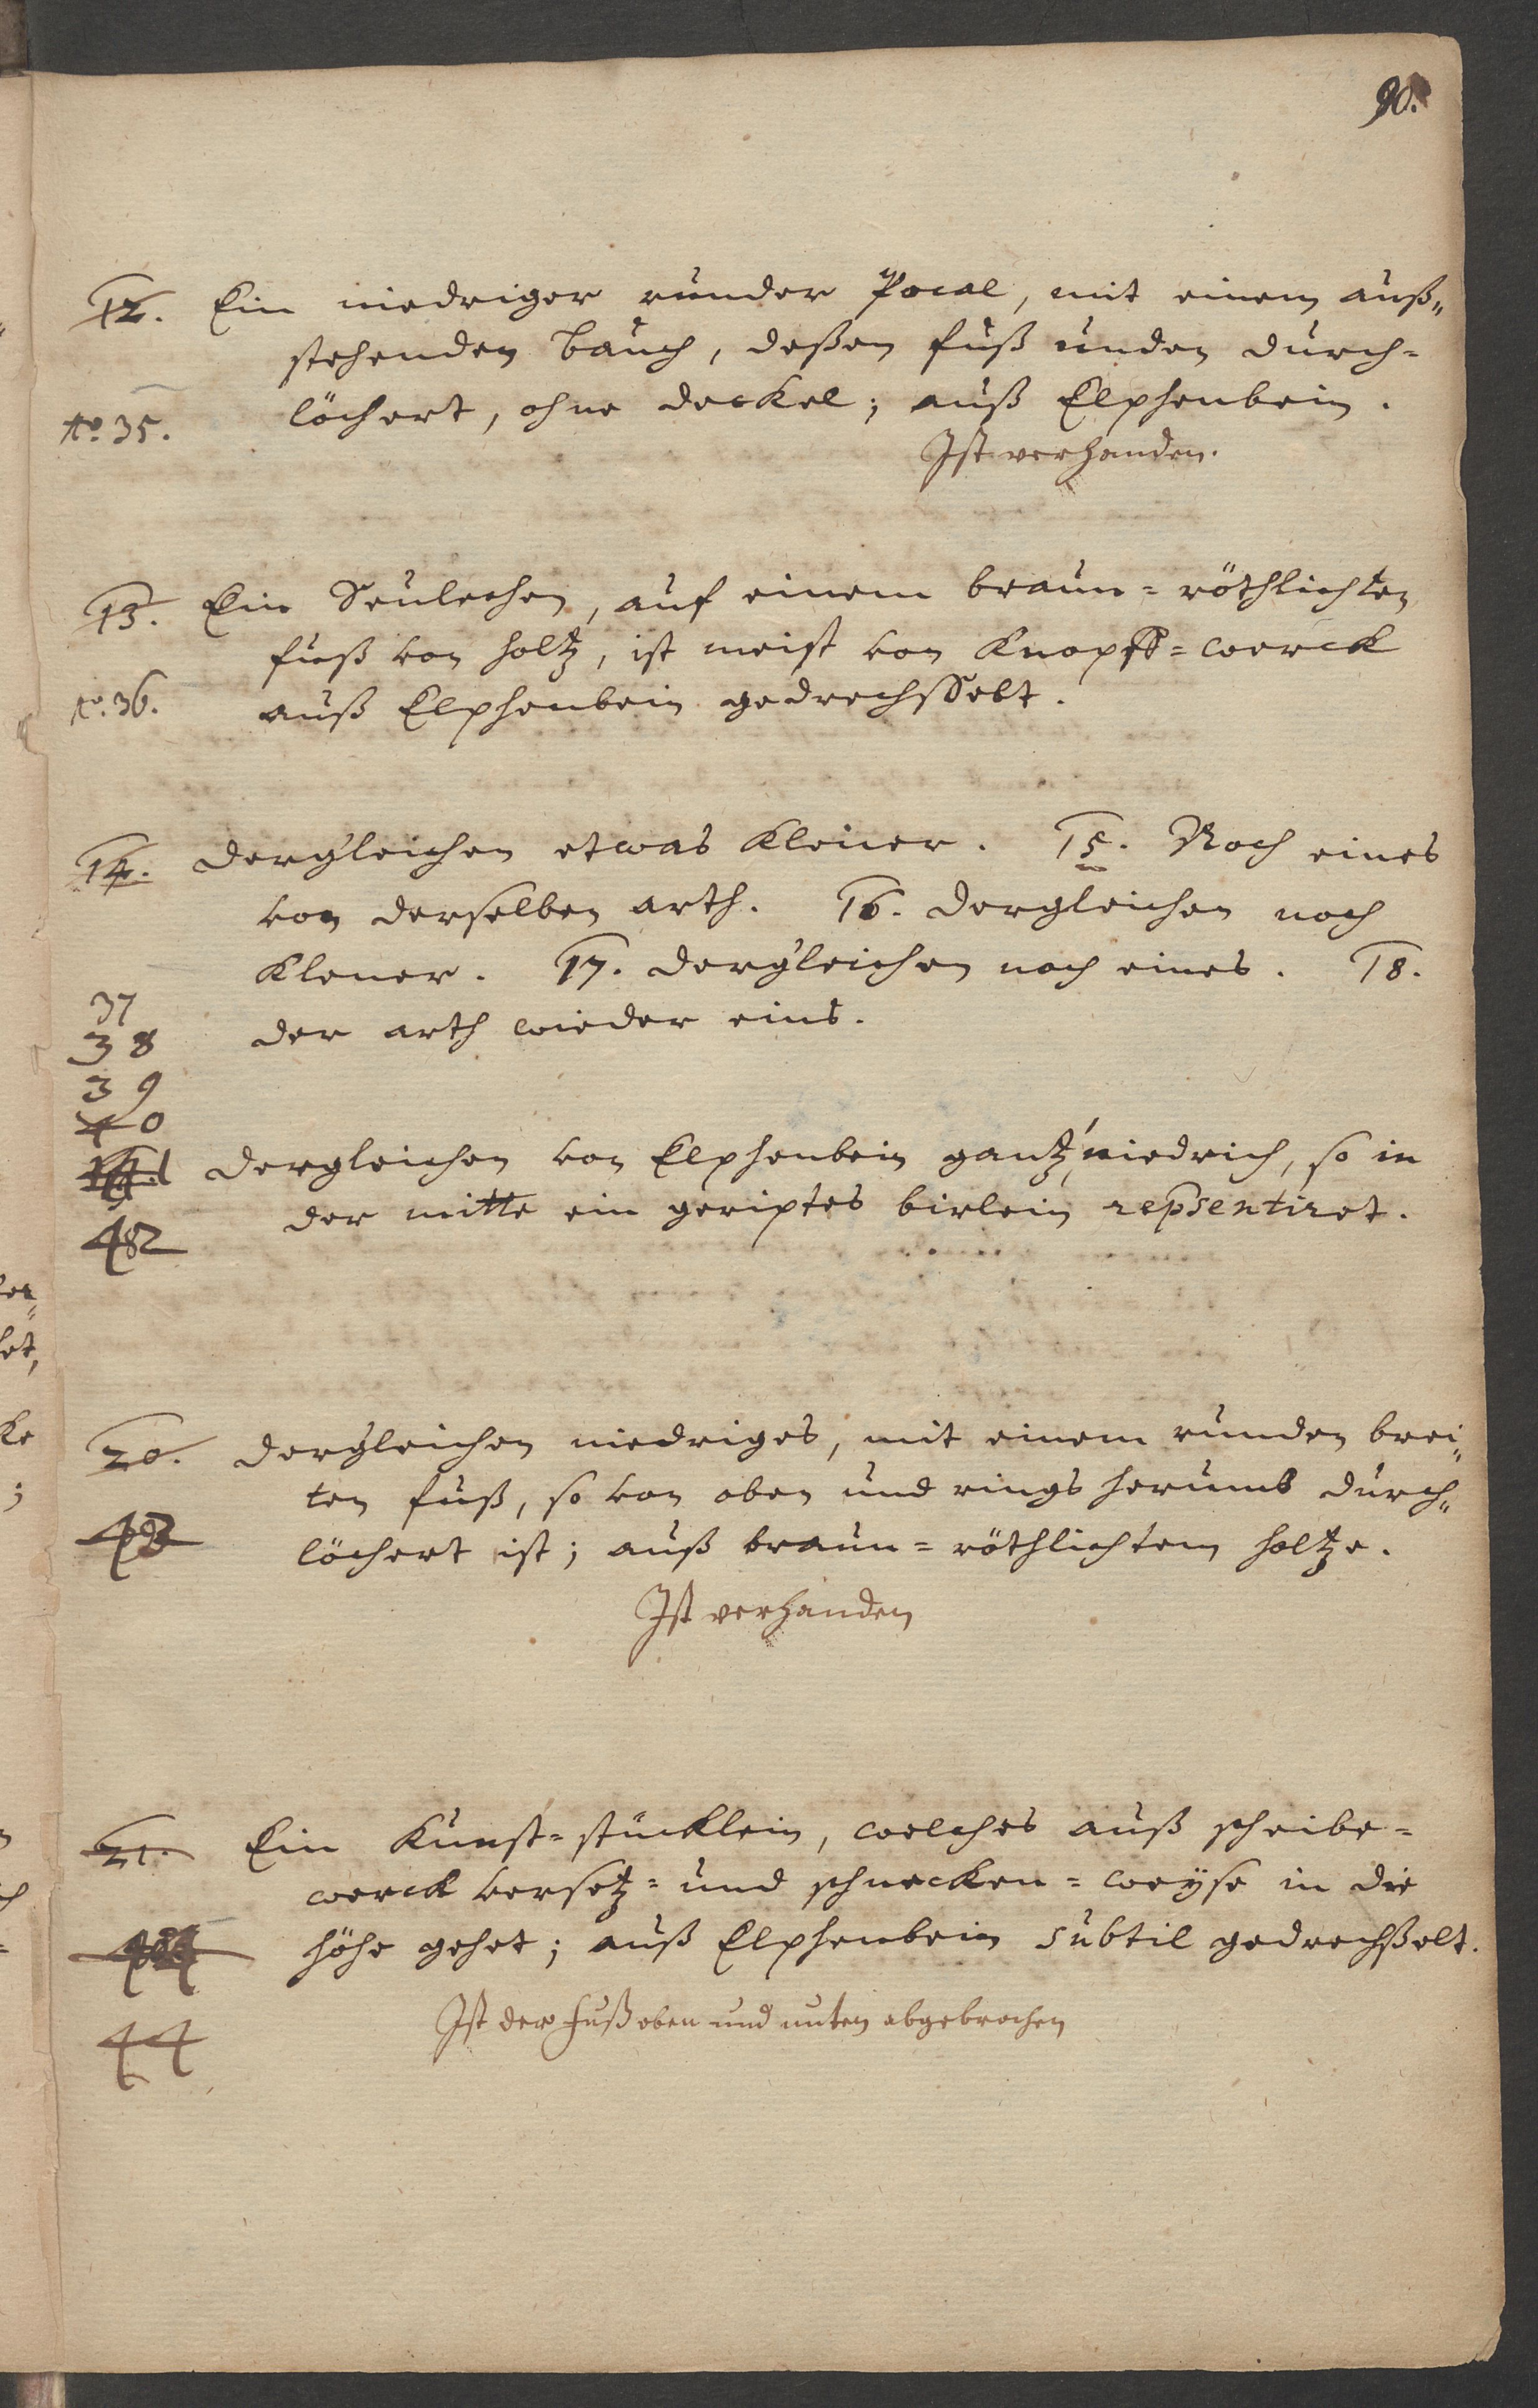 90.
12. Ein niedriger runder Pocal, mit einem auß„
stehenden bauch, deßen fuß unden durch=
löchert, ohne deckel; auß Elphenbein.
No. 35.
Ist verhanden.
13. Ein Seulechen, auf einem braun=röthlichten
fueß von holtz, ist meist von Knopff=werck
No. 36.
auß Elphenbein gedrechsselt.
14. dergleichen etwas kleiner. 15. Noch eines
von derselben arth. 16. dergleichen noch
klener. 17. dergleichen noch eines. 18.
der arth wieder eins.
37
38
39
40
dergleichen von Elphenbein gantz niedrich, so in
der mitte ein geriptes birlein repsentiret.
42
20. dergleichen niedriges, mit einem runden brei„
ten fuß, so von oben und rings herumb durch„
43
löchert ist; auß braun=röthlichtem holtze.
Ist verhanden
21. Ein Kunst=stücklein, welches auß scheibe=
werck versetz= und schnecken=weyse in die
höhe gehet; auß Elphenbein subtil gedrechßelt.
Ist der Fuß oben und unten abgebrochen
44